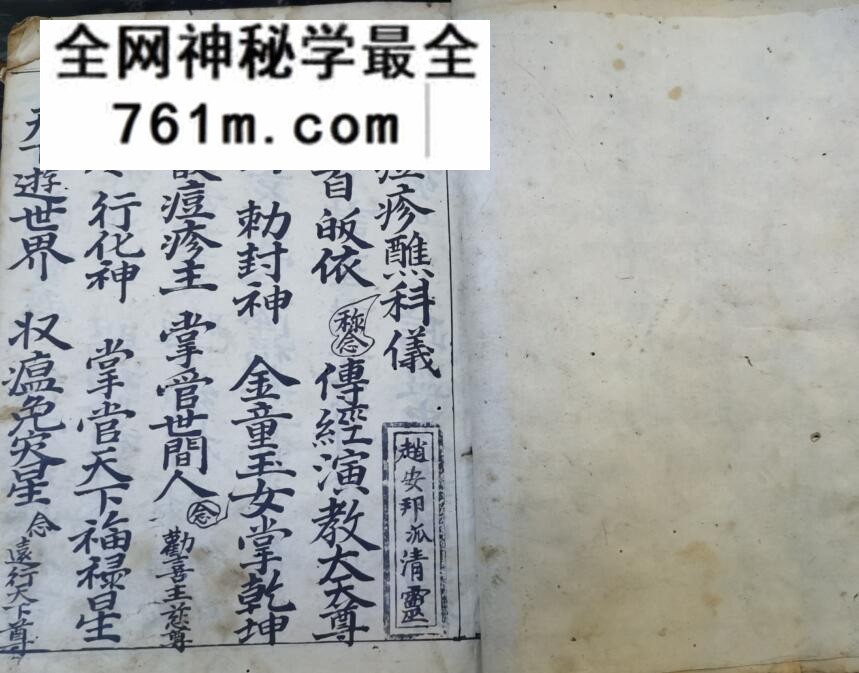 全网神秘学最全
761m.com
痘疹醮科儀
趙安邦泒清靈
首皈依 称念 傳經演教大天尊
勅封神 金童玉女掌乾坤
痘疹主 掌管世間人 念 勸喜王慈尊
行化神 掌官天下福禄星
天下遊世界 収瘟免灾星 念 遠行天下尊